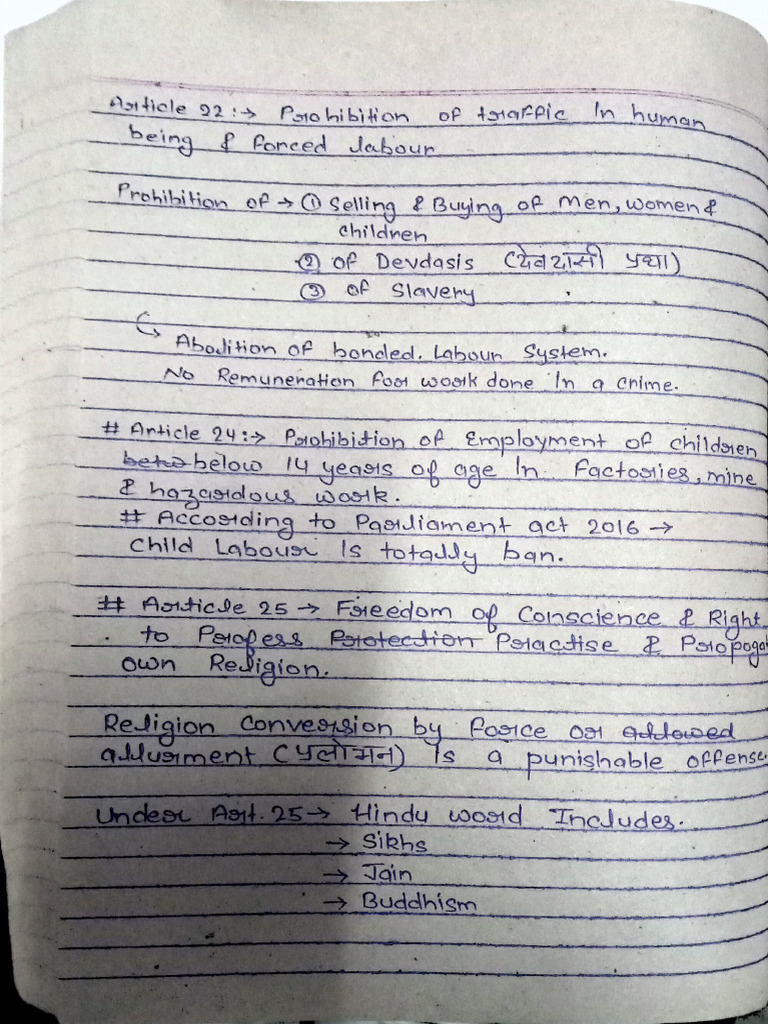 Article 22:→ Prohibition of traffic In human
being & forced labour
Prohibition of → ① Selling & Buying of Men, women &
children
② of Devdasis (देवदासी प्रथा)
③ of Slavery
↳ Abolition of bonded. Labour System.
No Remuneration for work done In a crime.
# Article 24:→ Prohibition of Employment of children
betw below 14 years of age In factories, mine
& hazardous work.
# According to Parliament act 2016 →
Child Labour Is totally ban.
# Article 25 → Freedom of Conscience & Right
. to Profess Protection Practise & Propogat
own Religion.
Religion conversion by force or allowed
allurment (प्रलोभन) Is a punishable offense.
Under Art. 25 → Hindu word Includes.
→ Sikhs
→ Jain
→ Buddhism